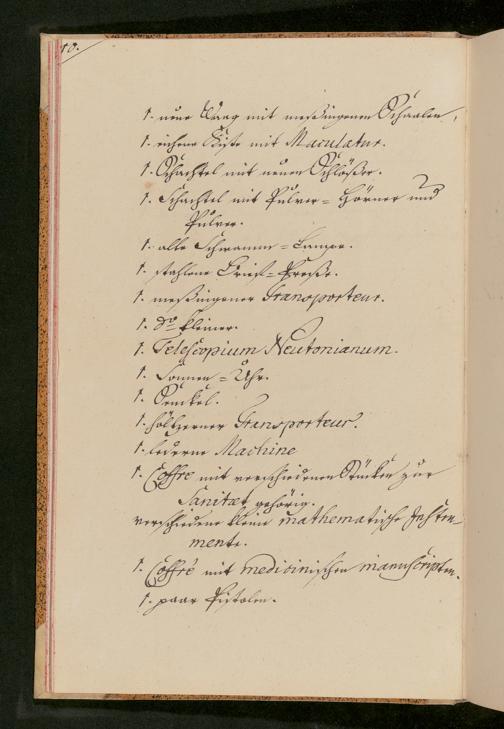 10.
1. neue Waag mit meßingenen Schaalen,
1. eichene Kiste mit Maculatur.
1. Schachtel mit neuen Schlößer.
1. Schachtel mit Pulver-Hörner und
Pulver.
1. alte Schwamm-Lampe.
1. stahlene Brief-Preße.
1. meßingener Transporteur.
1. do kleiner.
1. Telescopium Neutonianum.
1. Sonnen-Uhr.
1. Senckel.
1. höltzerner Transporteur.
1. lederne Machine
1. Coffre mit verschiedenen Stücken zur
Sanitæt gehörig.
verschiedene kleine mathematische Instru-
mente.
1. Coffre mit medicinischen manuscripten.
1. paar Pistolen.